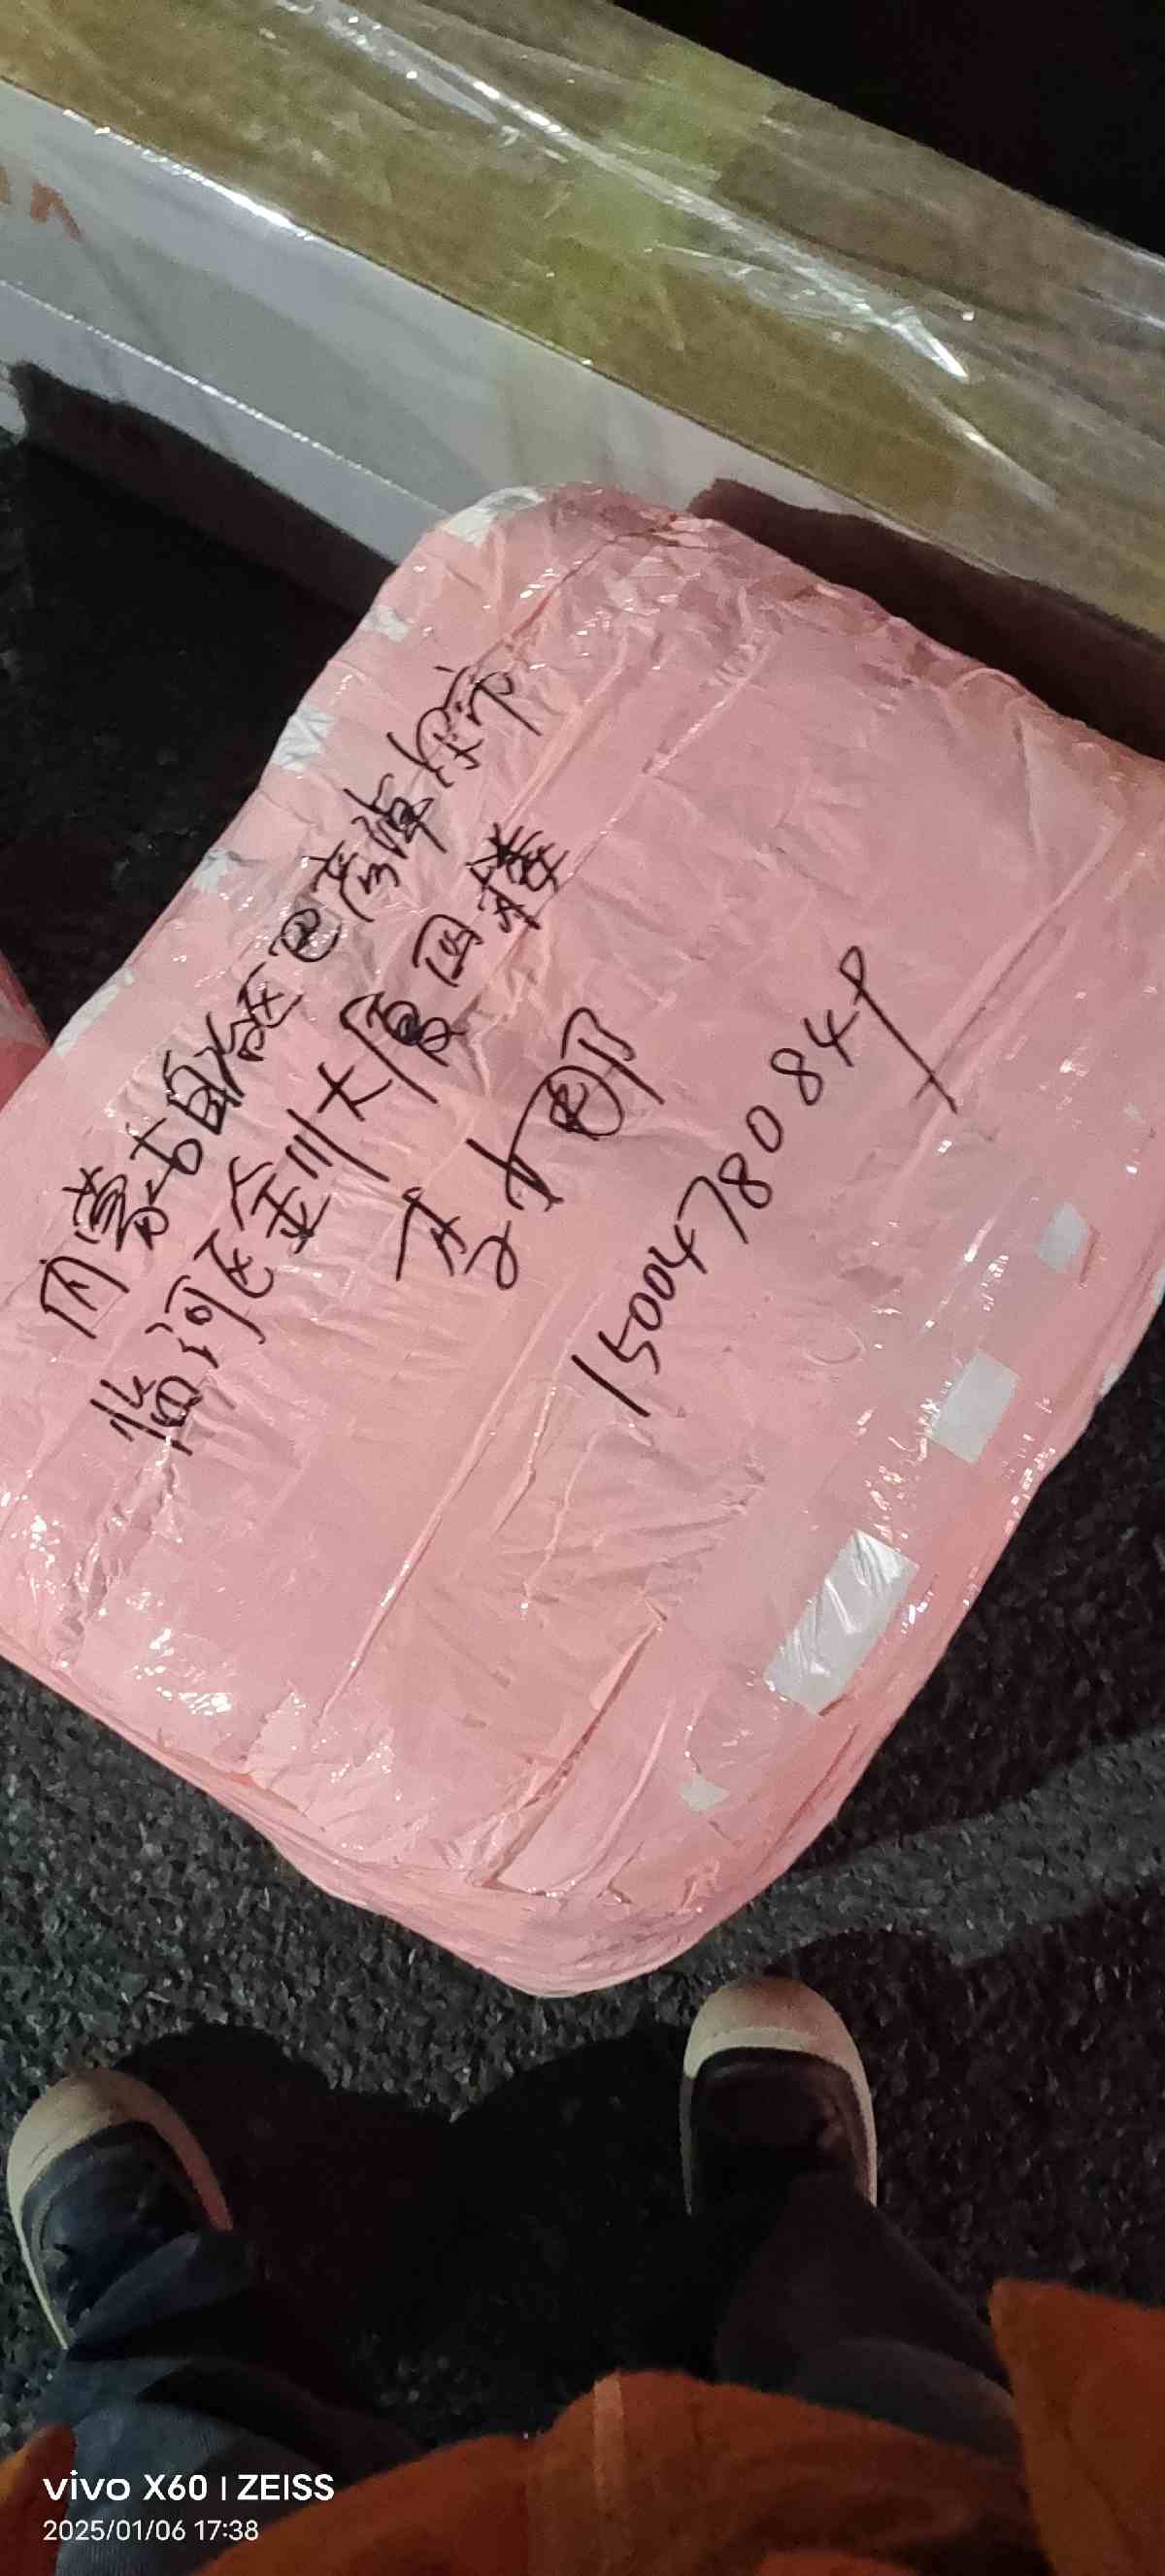 内蒙古自治区巴彦淖尔市
临河区金川大厦四楼
李
1500478084
vivo X60 | ZEISS
2025/01/06 17:38